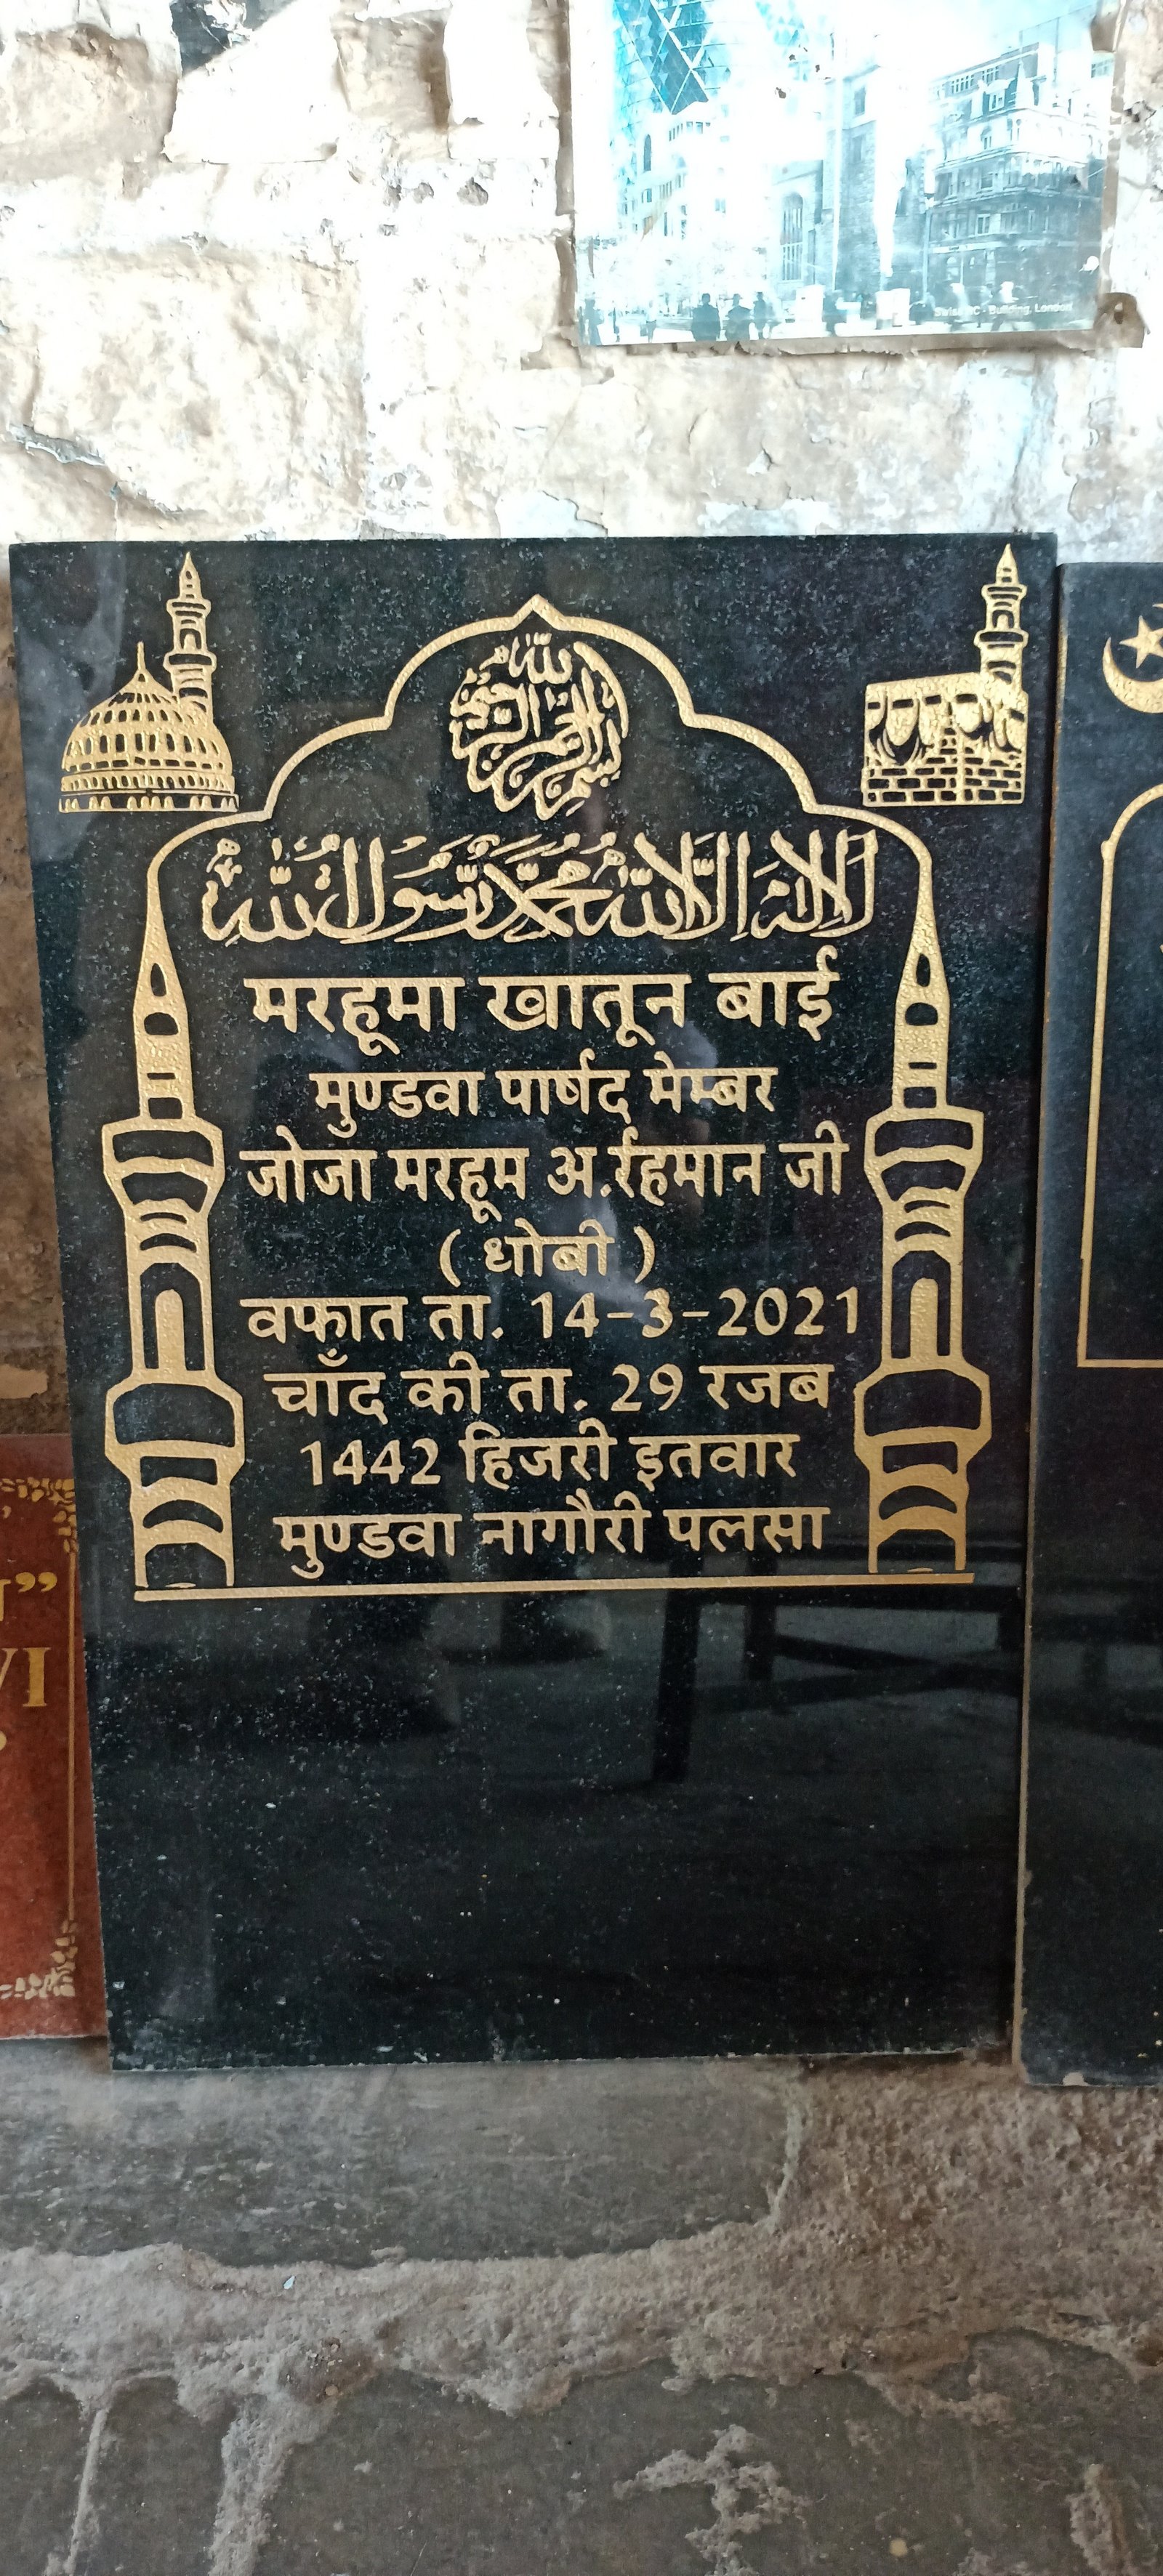 Swiss RC - Building, London
بسم الله الرحمن الرحيم
لا اله الا الله محمد رسول الله
मरहूमा खातून बाई
मुण्डवा पार्षद मेम्बर
जोजा मरहूम अ.र्रहमान जी
( धोबी )
वफात ता. 14-3-2021
चाँद की ता. 29 रजब
1442 हिजरी इतवार
मुण्डवा नागौरी पलसा
VI